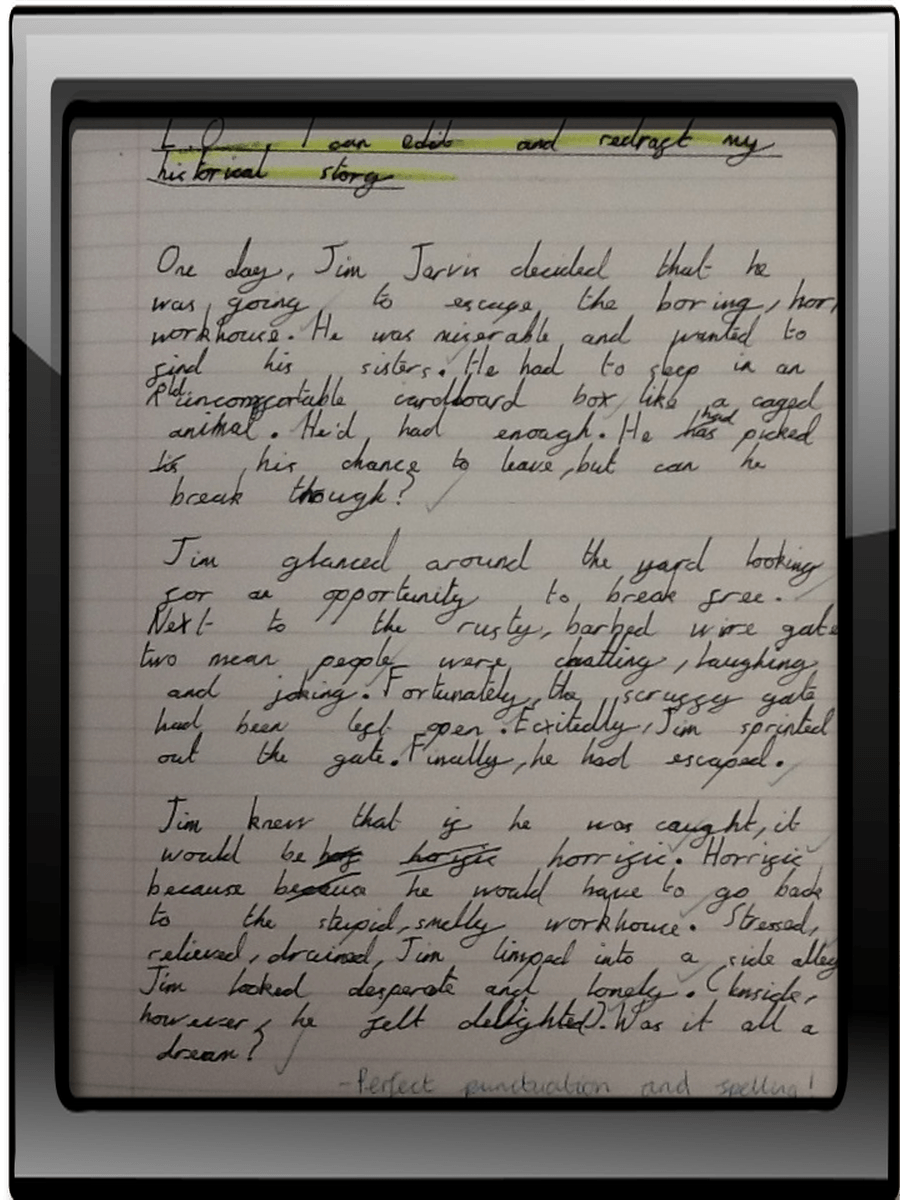 L.O. I can edit and redraft my
historical story
One day, Jim Jarvis decided that he
was going to escape the boring, horr
workhouse. He was miserable and wanted to
find his sisters. He had to sleep in an
old uncomfortable cardboard box like a caged
animal. He'd had enough. He had picked
his chance to leave, but can he
break though?
Jim glanced around the yard looking
for an opportunity to break free.
Next to the rusty, barbed wire gate
two mean people were chatting, laughing
and joking. Fortunately, the scruffy gate
had been left open. Exitedly, Jim sprinted
out the gate. Finally, he had escaped.
Jim knew that if he was caught, it
would be horrific. Horrific
because he would have to go back
to the stupid, smelly workhouse. Stressed,
relieved, drained, Jim limped into a side alley
Jim looked desperate and lonely. (Inside,
however, he felt delighted). Was it all a
dream?
-Perfect punctuation and spelling!